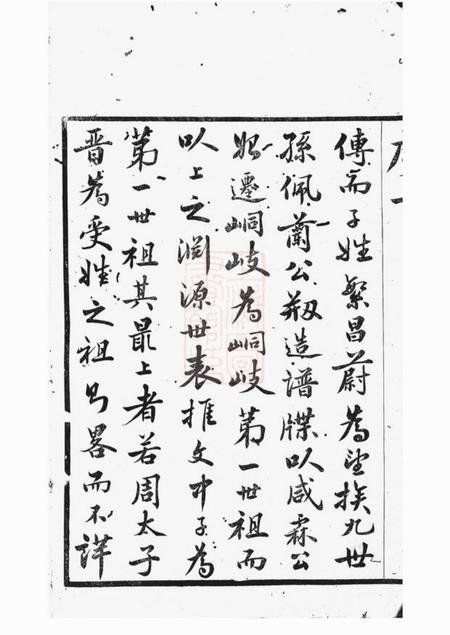 傳而子姓繁昌蔚為望族九世
孫佩蘭公剏造譜牒以咸霖公
始遷峒岐為峒岐第一世祖而
以上之淵源世表推文中子為
第一世祖其最上者若周太子
晉為受姓之祖則畧而不詳